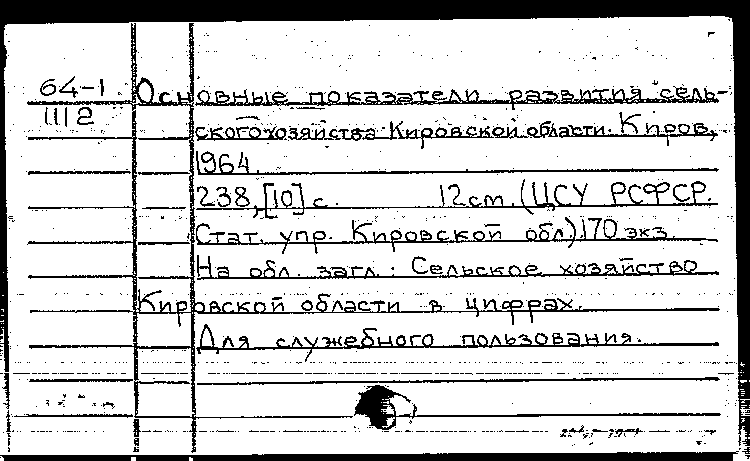 64-1 Основные показатели развития сель-
1112 ского хозяйства Кировской области. Киров,
1964.
238,[10] с. 12 см. (ЦСУ РСФСР.
Стат. упр. Кировской обл). 170 экз.
На обл. загл.: Сельское хозяйство
Кировской области в цифрах.
Для служебного пользования.